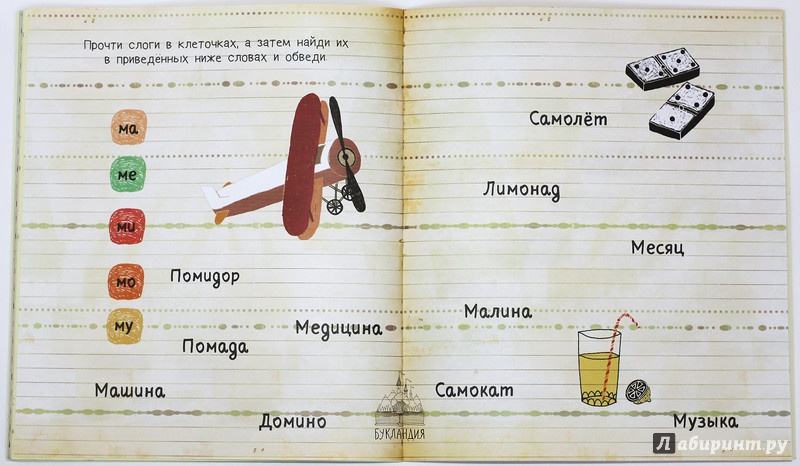 Прочти слоги в клеточках, а затем найди их
в приведённых ниже словах и обведи.
ма
ме
ми
мо
му
Помидор
Медицина
Помада
Машина
Домино
БУКЛАНДИЯ
Самолёт
Лимонад
Месяц
Малина
Самокат
Музыка
Лабиринт.ру